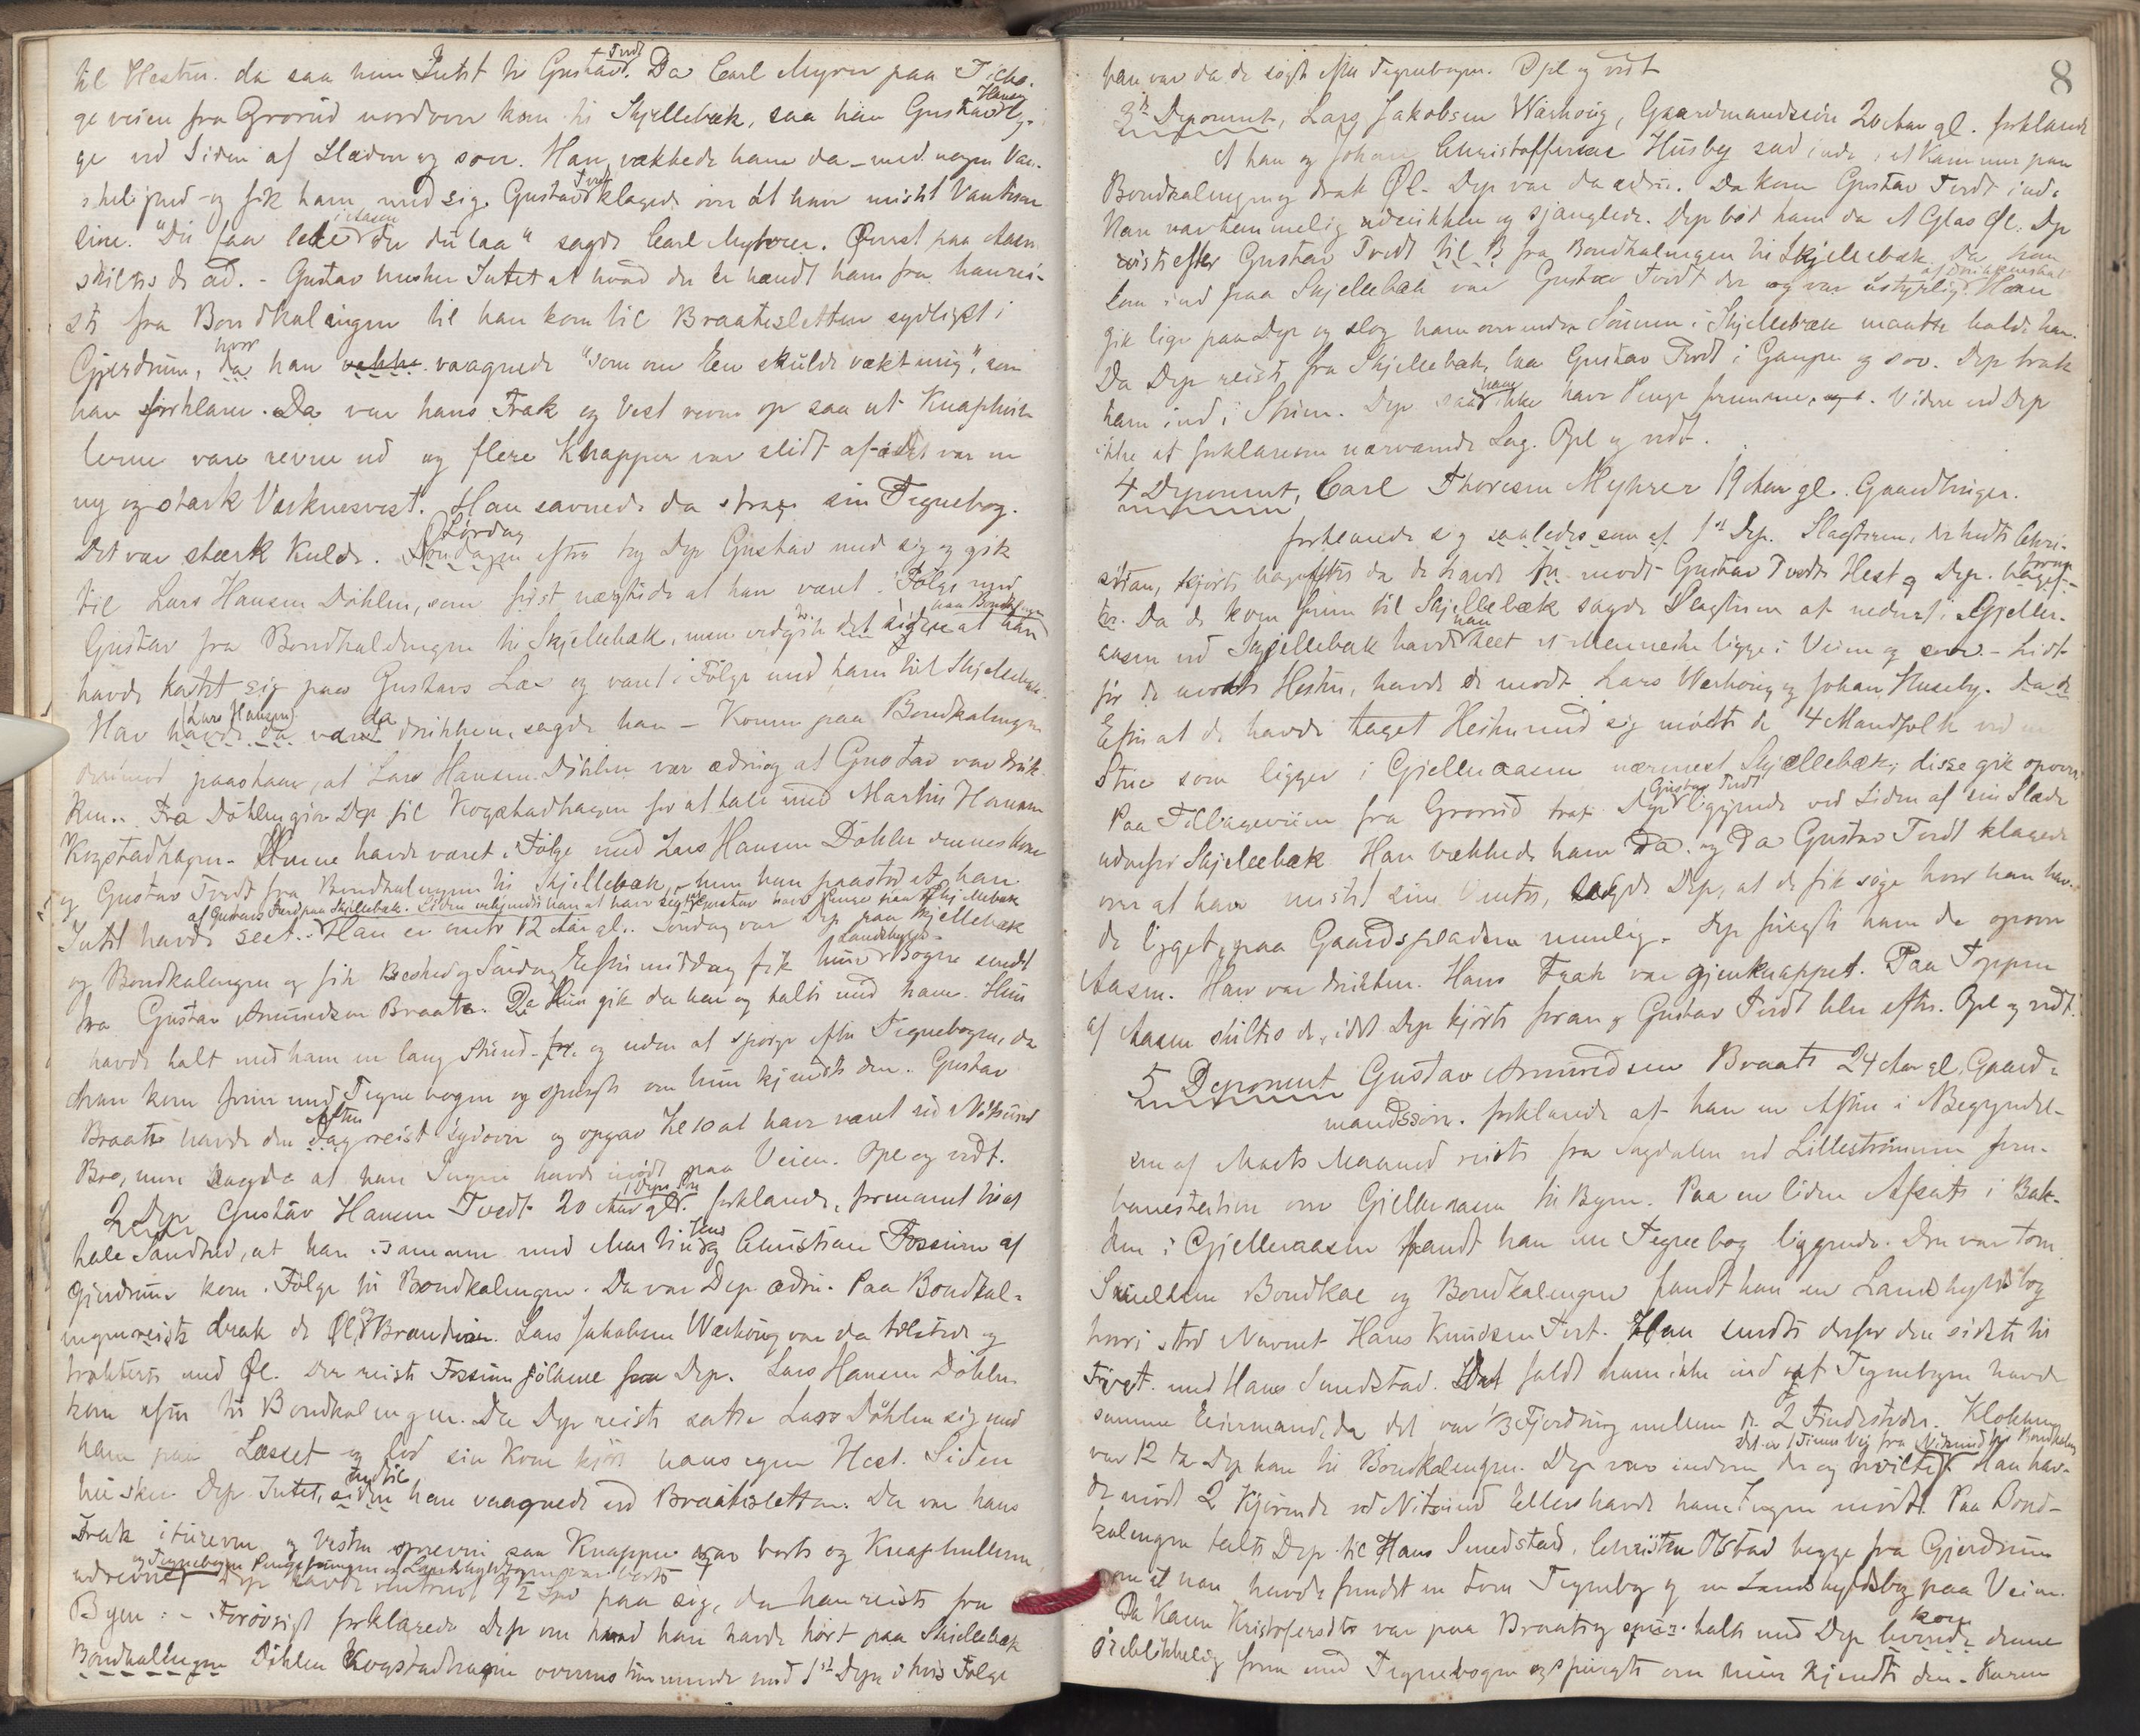 til Hesten. da saa hun Intet til Gustav Tvedt. Da Carl Myrer paa Tilba-
geveien fra Grorud nordover kom til Skjellebæk, saa han Gustav Hansen lig-
ge ved Siden af Slæden og sove. Han vækkede ham da - med nogen Van-
skelighed - og fik ham med sig. Gustav Tvedt klagede over at have mistet Vanterne
sine. "Du faar lede i Aasen der du laa" sagde Carl Myhrer. Øverst paa Aasen
skiltes de ad. - Gustav husker Intet af hvad der er hændt ham fra han rei-
ste fra Bondkalengen til han kom til Braateslettene sydligst i
Gjerdrum, da hvor han vækte vaagnede "som om En skulde vækt mig", som
han forklarer. Da var hans Frak og Vest revne op saa at Knaphul-
lerne vare revne ud og flere Knapper var slidt af - det var en
ny og stærk Verkensvest. Han savnede da strax sin Tegnebog.
Det var stærk Kulde. Søndagen Lørdag efter tog Dep Gustav med sig og gik
til Lars Hansen Døhlen, som først nægtede at han været i Følge med
Gustav fra Bondkalengen til Skjellebæk, men vedgik det siden at han paa Bondkalengen
havde kastet sig paa Gustavs Læs og været i Følge med ham til Skjellebæk.
Han (Lars Hansen) havde da været da drukken, sagde han - Konen paa Bondkalengen
derimod paastaar, at Lars Hansen Døhlen var ædru og at Gustav var druk-
ken. - Fra Døhlen gik Dep til Kogstadhagen for at tale med Martin Hansen
Kogstadhagen. Denne havde været i Følge med Lars Hansen Døhlen dennes Kone
og Gustav Tvedt fra Bondkalengen til Skjellebæk, men han paastod at han
Intet havde seet af Gustavs Færd paa Skjellebæk. Siden erkjendte han at have seet Gustav have Penge paa Skjellebæk. Han er omtr 12 Aar gl. Søndag var Dep paa Skjellebæk
og Bondkalengen og fik Besked og Søndag Eftermiddag fik hun Landshyld- Bogen sendt
fra Gustav Amundsen Braate. Da Hun gik da hen og talte med ham. Hun
havde talt med ham en lang Stund - før og uden at spørge efter Tegnebogen, da
han kom frem med Tegnebogen og spurgte om hun kjendte den. Gustav
Braate havde den Dag Aften reist sydover og opgav Kl 10 at have været ved Nitsund
Bro, men sagde at han Ingen havde mødt paa Veien. Opl og vedt.
2 Dep Gustav Hansen Tvedt 20 Aar gl. forklarede, formanet til at
tale Sandhed, at han isammen med Martin og Christian Fossum af
Gjerdrum kom i Følge til Bondkalengen. Da var Dep ædru. Paa Bondkal-
engen reiste drak de Øl og Brændevin. Lars Jakobsen Wærhoug var da tilstede og
trakterte med Øl. Der reiste Fossum følkene fra Dep. Lars Hansen Døhlen
kom efter til Bondkalengen. Da Dep reiste satte Lars Døhlen sig med
ham paa Læsset og lod sin Kone kjøre hans egen Hest. Siden
husker Dep Intet, siden indtil han vaagnede ved Braateslettene. Da var hans
Frak iturevne og Vesten oprevne saa Knapper var borte og Knaphullerne
udrevne og Tegnebogen Pengepungen og Landshyldbogen var borte. Dep havde omtrent 1/2 Spd paa sig, da han reiste fra
Byen: - Forøvrigt forklarede Dep om hvad han havde hørt paa Skjellebæk
Bondkallengen Døhlen Kogstadhagen overensstemmende med 1ste Dep i hvis Følge
8
han var da de søgte efter Tegnebogen. Opl og vedt
3de Deponent, Lars Jakobsen Wærhoug, Gaardmandssøn 20 Aar gl. forklarede
At han og Johan Christoffersen Husby sad inde i et Kammer paa
Bondkalengen og drak Øl. Dep var da ædru. Da kom Gustav Tvedt ind.
Han var temmelig udrukken og sjanglede. Dep bød ham da et Glas Øl. Dep
reiste efter Gustav Tvedt til B fra Bondkalengen til Skjellebæk. Da han
kom ind paa Skjellebæk var Gustav Tvedt der og var ustyrlig af Drukkenskab. Han
gik lige paa Dep og slog ham overende. Sønnen i Skjellebæk maatte holde ham.
Da Dep reiste fra Skjellebæk, laa Gustav Tvedt i Gangen og sov. Dep trak
ham ind i Stuen. Dep saa ham ikke have Penge fremme, . Videre ved Dep
ikke at forklare om nærværende Sag. Opl og vedt.
4 Deponent, Carl Thoresen Myhrer 19 Aar gl. Gaardbruger.
forklarede sig saaledes som af 1ste Dep. Slagteren, der hedte Chri-
stian, kjørte bagefter da de havde faa mødt Gustav Tvedts Hest og Dep. foran bagef-
ter. Da de kom frem til Skjellebæk sagde Slagteren at nederst i Gjeller-
aasen ved Skjellebæk havde han seet et Menneske ligge i Veien og sove. - Lidt
før de mødte Hesten, havde de mødt Lars Wærhoug og Johan Huseby. Da de
Efter at de havde taget Hesten med sig mødte de 4 Mandfolk ved en
Stue som ligger i Gjelleraasen nærmest Skjellebæk; disse gik opover.
Paa Tilbageveien fra Grorud traf Dep Gustav Tvedt liggende ved Siden af sin Slæde
udenfor Skjellebæk. Han vækkede ham da. og da Gustav Tvedt klagede
over at have mistet sine Vanter, sagde Dep, at de fik søge hvor han hav-
de ligget, paa Gaardspladsen nemlig. Dep fulgte ham da opover
Aasen. Han var drukken. Hans Frak var gjenknappet. Paa Toppen
af Aasen skiltes de, idet Dep kjørte foran og Gustav Tvedt blev efter. Opl og vedt.
5 Deponent Gustav Amundsen Braate 24 Aar gl, Gaard-
mandssøn. forklarede at han en Aften i Begyndel-
sen af Marts Maaned reiste fra Sagdalen ved Lillestrømmen Jern-
banestation over Gjelleraasen til Byen. Paa en liden Afsats i Bak-
ken i Gjelleraasen fandt han en Tegnebog liggende. Den var tom
Imellem Bondkal og Bondkalengen fandt han en Landshyldsbog
hvori stod Navnet Hans Knudsen Tvet. Han sendte derfor den sidste til
Tveet med Hans Smedstad. Det faldt ham ikke ind at Tegnebogen havde
samme Eiermand, da det var 1/3 Fjerdning mellem de 2 Findesteder. Klokken
var 12 da Dep kom til Bondkalengen. Dep var indom der og hvilte. Det er 1 Times Vei fra Nitsund til Bondkalengen Han hav-
de mødt 2 Kjørende ved Nitsund Ellers havde han Ingen mødt. Paa Bond-
kalengen talte Dep til Hans Smedstad, Christen Østad begge fra Gjerdrum
om at han havde fundet en tom Tegnebog og en Landshyldsbog paa Veien.
Da Karen Kristofersdtr var paa Braate og talte med Dep kom denne
øieblikkelig frem med Tegnebogen og spurgte om hun kjendte den. Karen